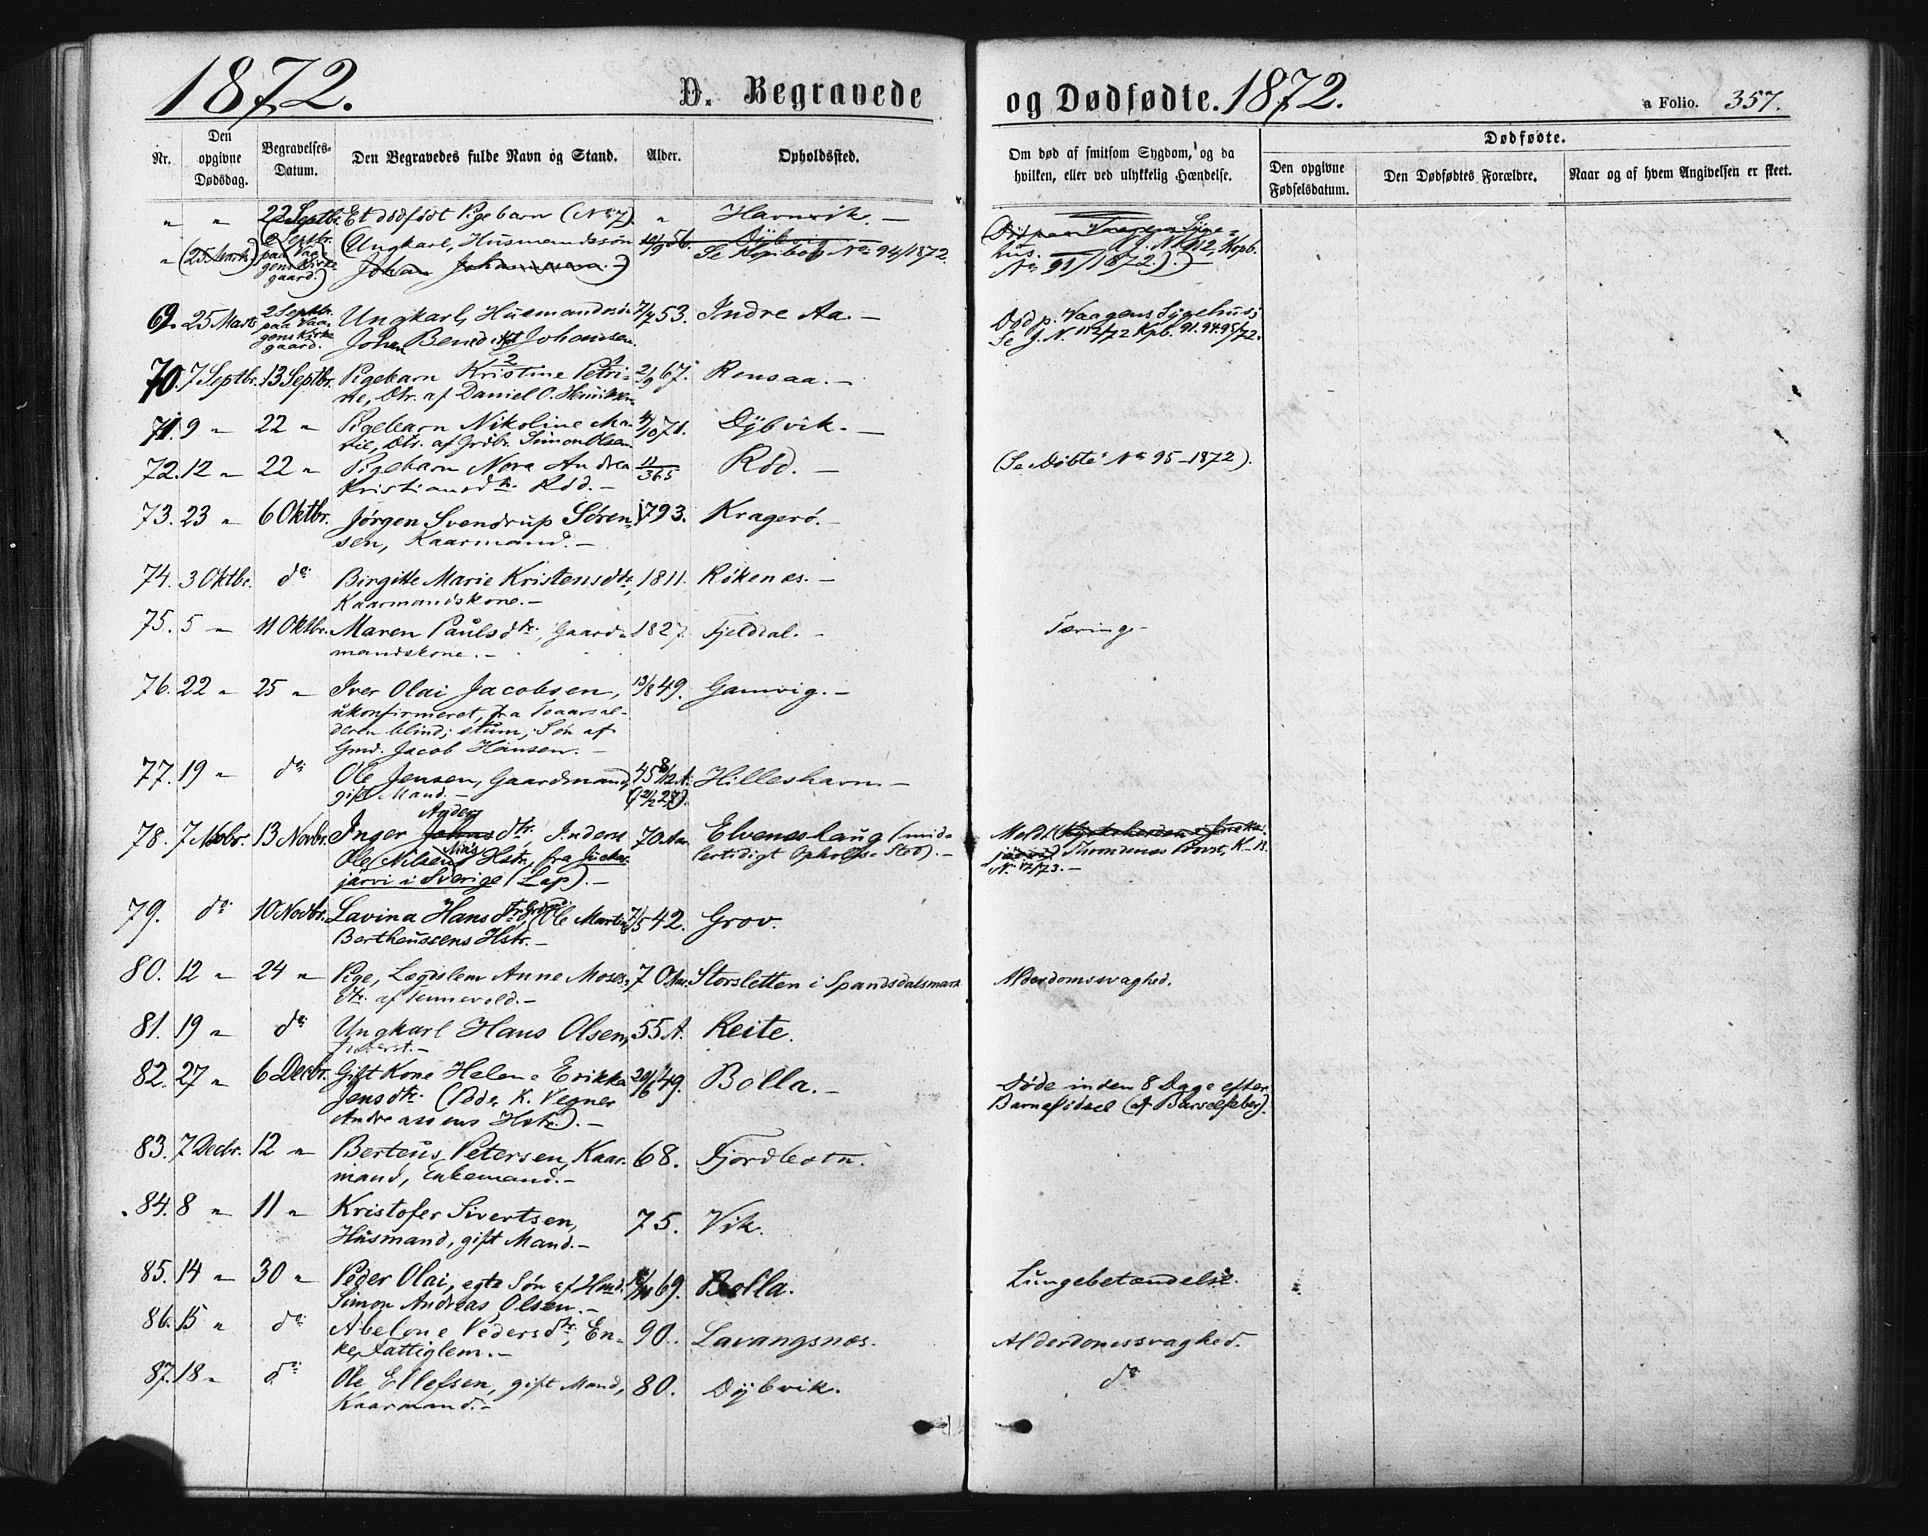 1872. D. Begravede og Dødfødte. 1872. a Folio. 357.
Nr. Den opgivne Dødsdag. Begravelses-Datum. Den Begravedes fulde Navn og Stand. Alder. Opholdsted. Om død af smitsom Sygdom, og da hvilken, eller ved ulykkelig Hændelse. Dødfødte.
Den opgivne Fødselsdatum. Den Dødfødtes Forældre. Naar og af hvem Angivelsen er skeet.
" " 22 Septbr. Et dødfødt Pigebarn (No 7). " Havnvik. -
" (25 Marts) (2 Septbr. paa Vaagens Kirkegaard) (Ungkarl, Husmandssøn Johan Johannesen.) Se Kopibog No 94/1872.
hus. J. N. 112, Kopb. No 91/1872.). -
69. 25 Marts 2 Septbr. paa Vaagens Kirkegaard. Ungkarl, Husmandssøn 7/7 53. Indre Aa. - Død p. Vaagens Sygehus;
Johan Benedikt Johansen. Se J. N. 112/72 Kpb. 91.94.95/72.
70. 7 Septbr. 13 Septbr. Pigebarn Kristine Petri- 2/9 67. Rensaa. -
ne, Dtr. af Daniel O. Henriksen
71. 9 " 22 " Pigebarn Nikoline Ma- 4/10 71. Dÿbvik. -
tie, Dtr. af Grdbr. Simon Olsen
72. 12 " 22 " Pigebarn Nora Andrea 11/365 Rød. - (Se "Døbte" No 95-1872).
Kristiansdtr. Rød. -
73. 23 " 6 Oktbr. Jørgen Svendrup Sören- 1793. Kragerö. -
sen, Kaarmand. -
74. 3 Oktbr. do Birgitte Marie Kristensdtr., 1811. Røkenes. -
Kaarmandskone. -
75. 5 " 11 Oktbr. Maren Paulsdtr., Gaard- 1827. Fjelddal. - Tæring -
mandskone. -
76. 22 " 25 " Iver Olai Jacobsen, 13/8 49. Gamvig. -
ukonfirmeret, fra Toaarsal-
deren blind; stum; Søn af
Gmd. Jacob Hansen. -
77. 19 " do Ole Jensen, Gaardmand, 45 8/12 A. Hilleshavn -
gift Mand. - (2/2 27).
Anders
78. 7 Novbr. 13 Novbr. Inger Johnsdtr. Inders 70 Aar Elveneshaug (mid-
Ole Nilsen Hstr., fra Juckas- lertidigt Opholds-Sted). - Trondenes Provst, K-13.
järvi i Sverige (Lap). - No 17/73. -
79. do 10 Novbr. Lavina Hansdtr. Grov (Ole Martin 7/5 42. Grov.
Bertheussens Hstr. -
80. 12 " 24 " Pige, Lægdslem Anne Moses- 70 Aar. Storsletten i Spandsdalsmark Alderdomssvaghed.
dtr. af Tennevold. -
81. 19 " do Ungkarl Hans Olsen, 55 A. Reite.
82. 27 " 6 Decbr. Gift Kone Helene Erikka 20/6 49. Bolla. - Døde inden 8 Dage efter
Jensdtr. (Peder K. Vegner Barnefødsel (af Barselfeber).
Andreassens Hstr.). -
83. 7 Decbr. 12 " Berteus Petersen, Kaar- 68. Fjordbotn.
mand, Enkemand. -
84. 8 " 11 " Kristofer Sivertsen, 75. Vik.
Husmand, gift Mand. -
85. 14 " 30 " Peder Olai, egte Søn af Hmd. 69. Bolla. Lungebetændelse.
Simon Andreas Olsen. -
86. 15 " do Abelone Pedersdtr., En- 90. Lavangsnæs. Alderdomssvaghed.
ke, Fattiglem. -
87. 18 " do Ole Ellefsen, gift Mand, 80. Dÿbvik. do
Kaarmand. -